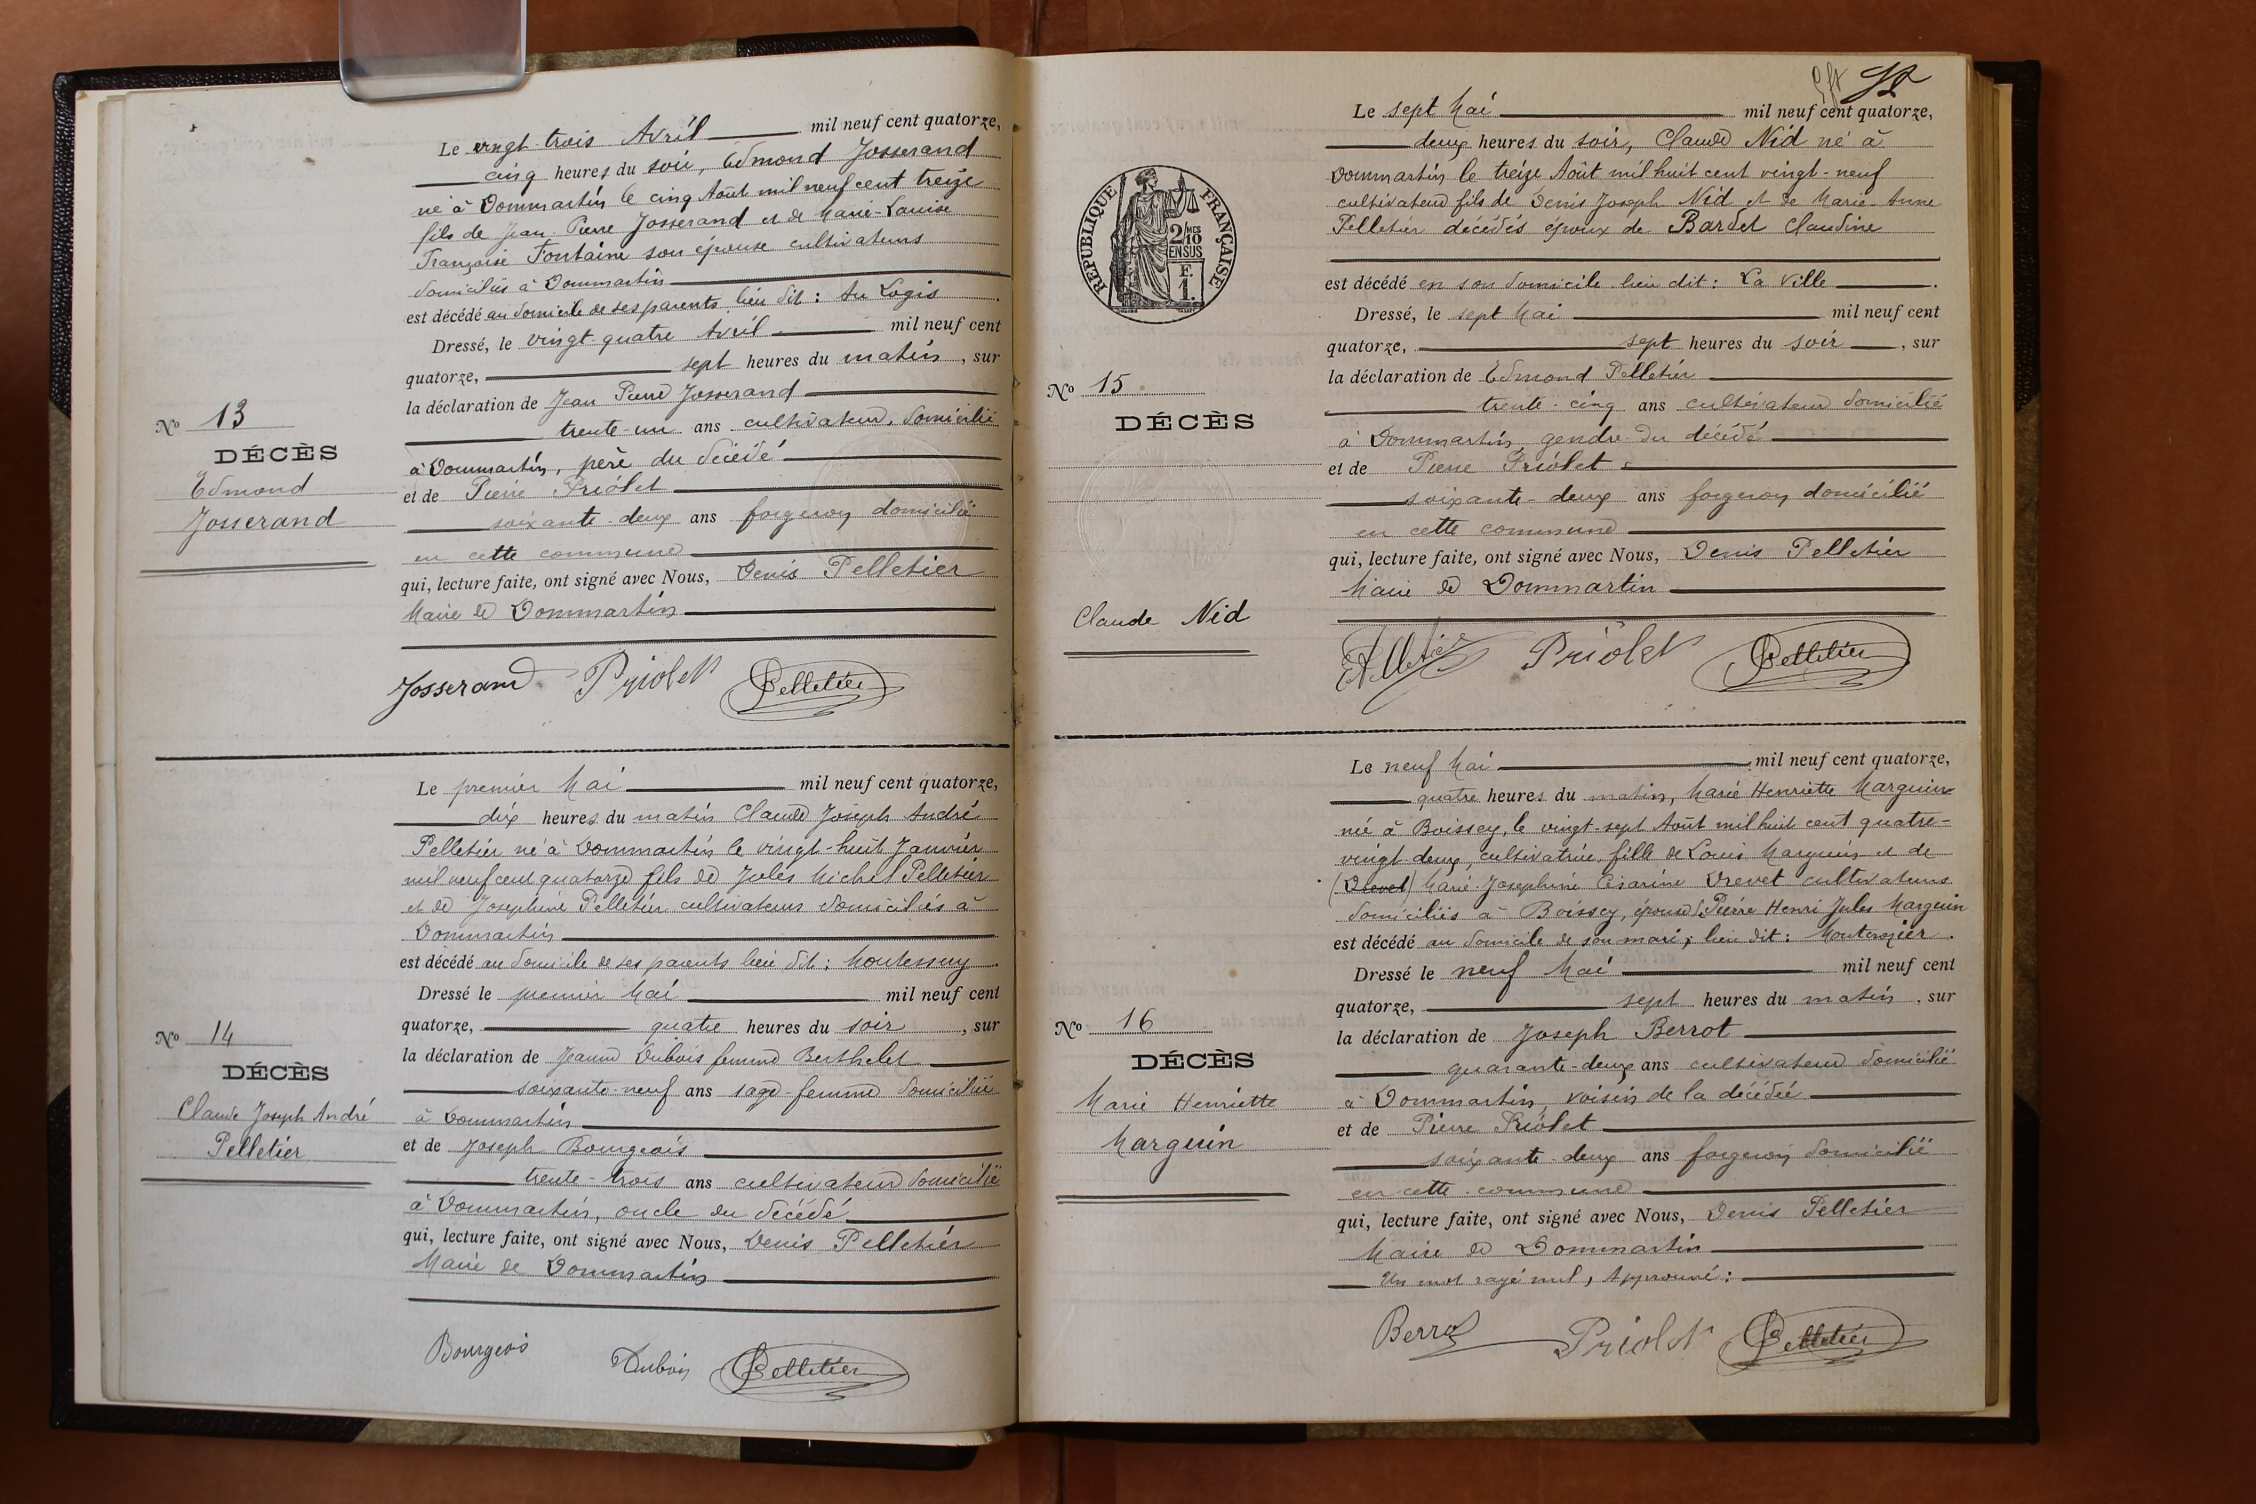 Le vingt-trois Avril mil neuf cent quatorze,
cinq heures du soir, Edmond Josserand
né à Dommartin le cinq Août mil neuf cent treize
fils de Jean-Pierre Josserand et de Marie-Louise
Françoise Fontaine son épouse cultivateurs
domiciliés à Dommartin
est décédé au domicile de ses parents, lieu dit : Au Logis
Dressé, le vingt-quatre Avril mil neuf cent
quatorze, sept heures du matin, sur
la déclaration de Jean Pierre Josserand
trente-un ans cultivateur, domicilié
à Dommartin, père du décédé
et de Pierre Priolet
soixante-deux ans forgeron domicilié
en cette commune
qui, lecture faite, ont signé avec Nous, Denis Pelletier
Maire de Dommartin
No 13
DÉCÈS
Edmond
Josserand
Josserand Priolet Pelletier
Le premier Mai mil neuf cent quatorze,
dix heures du matin Claude Joseph André
Pelletier né à Dommartin le vingt-huit Janvier
mil neuf cent quatorze fils de Jules Michel Pelletier
et de Joséphine Pelletier cultivateurs domiciliés à
Dommartin
est décédé au domicile de ses parents lieu dit : Montessuy
Dressé le premier Mai mil neuf cent
quatorze, quatre heures du soir, sur
la déclaration de Jeanne Dubois femme Berthelet
soixante-neuf ans sage-femme domiciliée
à Dommartin
et de Joseph Bourgeois
trente-trois ans cultivateur domicilié
à Dommartin, oncle du décédé
qui, lecture faite, ont signé avec Nous, Denis Pelletier
Maire de Dommartin
No 14
DÉCÈS
Claude Joseph André
Pelletier
Bourgeois Dubois Pelletier
Le sept Mai mil neuf cent quatorze,
deux heures du soir, Claude Nid né à
Dommartin le treize Août mil huit cent vingt-neuf
cultivateur fils de Denis Joseph Nid et de Marie-Anne
Pelletier décédés époux de Bardet Claudine
est décédé en son domicile lieu dit : La Ville.
Dressé, le sept Mai mil neuf cent
quatorze, sept heures du soir, sur
la déclaration de Edmond Pelletier
trente-cinq ans cultivateur domicilié
à Dommartin, gendre du décédé
et de Pierre Priolet
soixante-deux ans forgeron domicilié
en cette commune
qui, lecture faite, ont signé avec Nous, Denis Pelletier
Maire de Dommartin
RÉPUBLIQUE FRANÇAISE
2/10 MES
EN SUS
F.
1.
No 15
DÉCÈS
Claude Nid
Priolet Pelletier
Le neuf Mai mil neuf cent quatorze,
quatre heures du matin, Marie Henriette Marguin
née à Boissey, le vingt-sept Août mil huit cent quatre-
vingt-deux, cultivatrice, fille de Louis Marguin et de
(Drevet) Marie-Joséphine Césarine Drevet cultivateurs
domiciliés à Boissey, épouse de Pierre Henri Jules Marguin
est décédé au domicile de son mari, lieu dit : Montcrozier.
Dressé le neuf Mai mil neuf cent
quatorze, sept heures du matin, sur
la déclaration de Joseph Berrot
quarante-deux ans cultivateur domicilié
à Dommartin, voisin de la décédée
et de Pierre Priolet
soixante-deux ans forgeron domicilié
en cette commune
qui, lecture faite, ont signé avec Nous, Denis Pelletier
Maire de Dommartin
Un mot rayé nul, Approuvé :
No 16
DÉCÈS
Marie Henriette
Marguin
Berrot Priolet Pelletier